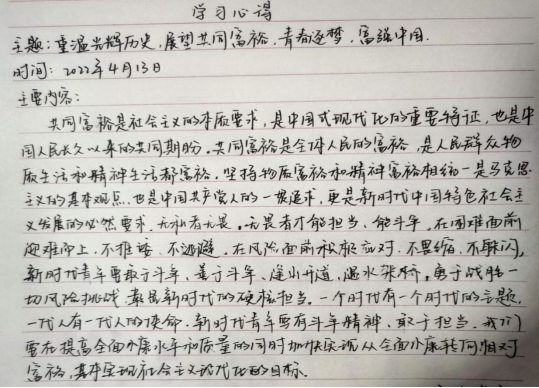 学习心得
主题：重温光辉历史，展望共同富裕，青春逐梦，富强中国.
时间：2022年4月13日
主要内容：
共同富裕是社会主义的本质要求，是中国式现代化的重要特征，也是中
国人民长久以来的共同期盼。共同富裕是全体人民的富裕，是人民群众物
质生活和精神生活都富裕。坚持物质富裕和精神富裕相统一是马克思
主义的基本观点，也是中国共产党人的一贯追求，更是新时代中国特色社会主
义发展的必然要求。无私者无畏，无畏者才能担当、能斗争，在困难面前
迎难而上、不推诿、不逃避，在风险面前积极应对、不畏缩、不躲闪，
新时代青年要敢于斗争、善于斗争、逢山开道、遇水架桥，勇于战胜一
切风险挑战，彰显新时代的硬核担当。一个时代有一个时代的主题，
一代人有一代人的使命。新时代青年要有斗争精神、敢于担当。我们
要在提高全面小康水平和质量的同时加快实现从全面小康转向相对
富裕，基本实现社会主义现代化的目标.